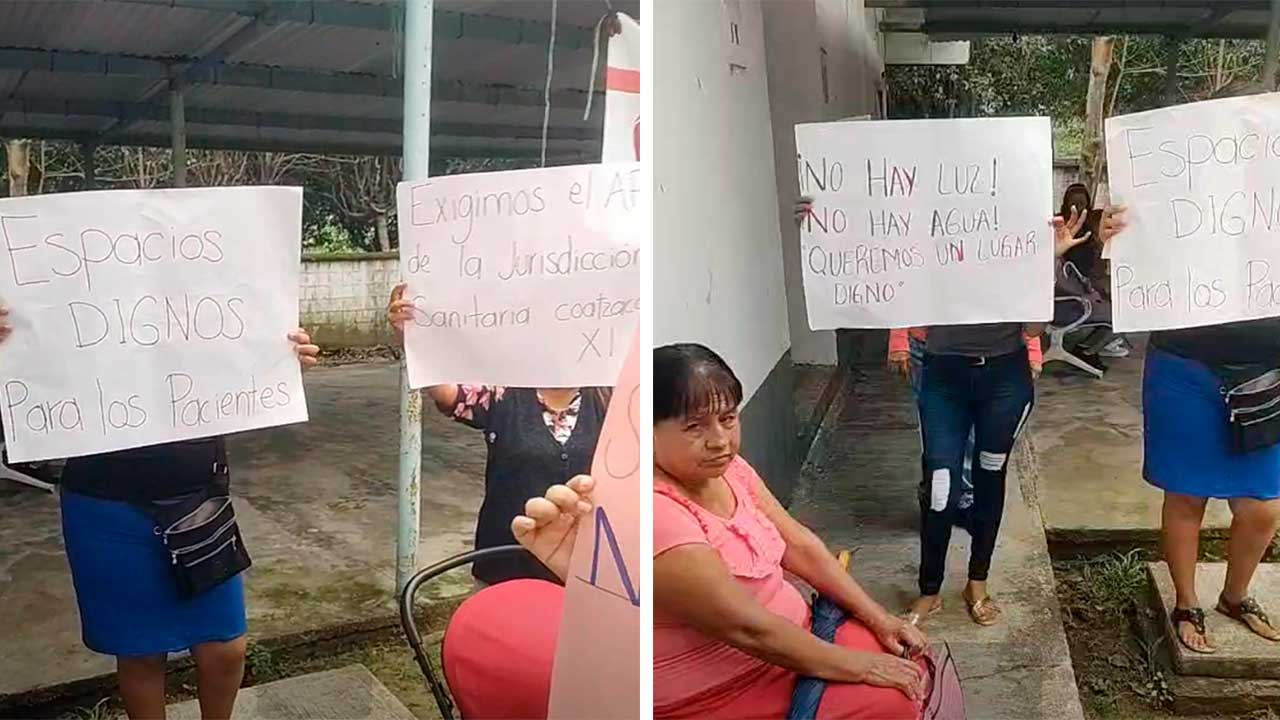 Espacios
DIGNOS
Para los Pacientes
Exigimos el
de la Jurisdicción
Sanitaria
XI
¡NO HAY LUZ!
NO HAY AGUA!
"QUEREMOS UN LUGAR
DIGNO"
DIGN
Para los